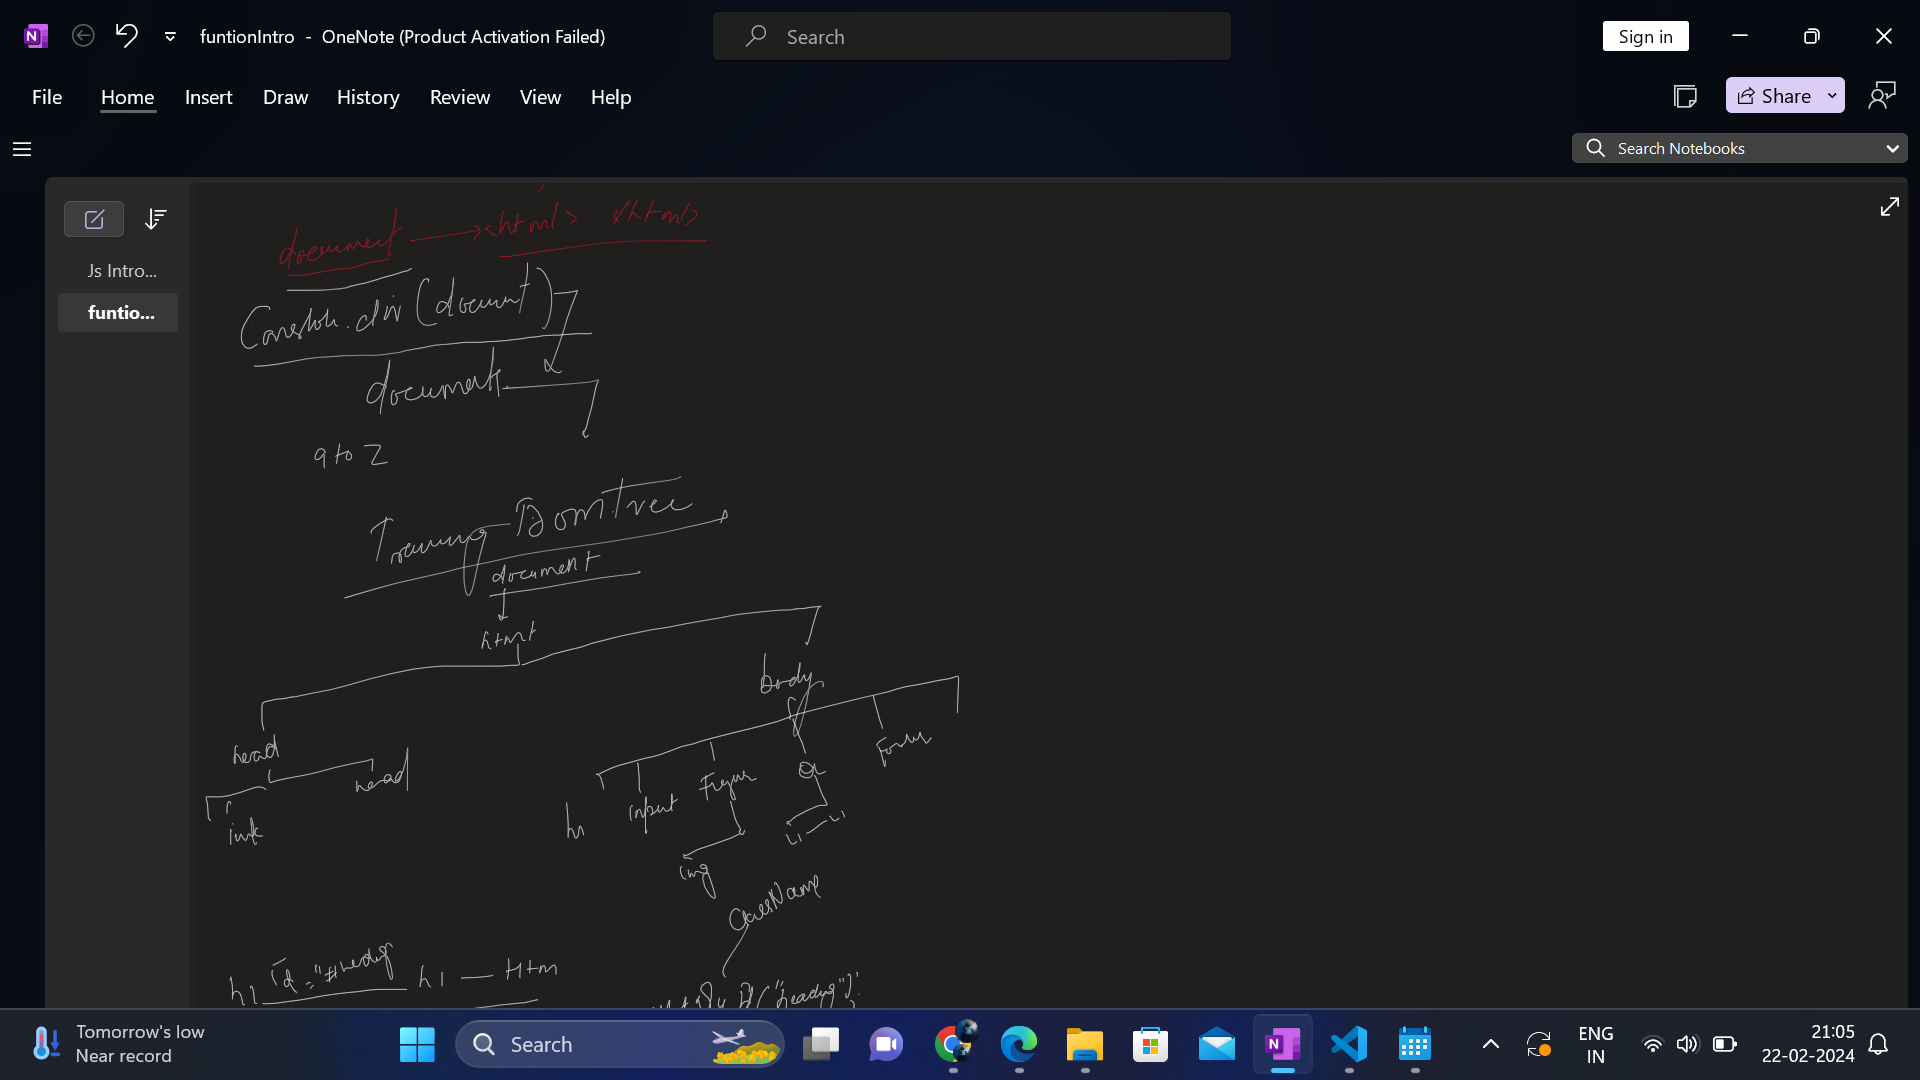 funtionIntro - OneNote (Product Activation Failed)
Search
Sign in
File Home Insert Draw History Review View Help
Share
Search Notebooks
Js Intro...
funtio...
document <html> </html>
document
a to z
Dom Tree
document
html
body
head
head
link
h1
input
Figure
ol
Form
img
Li Li
ClassName
h1 Id="#heading h1 Htm
("heading")
Tomorrow's low
Near record
Search
ENG
IN
21:05
22-02-2024